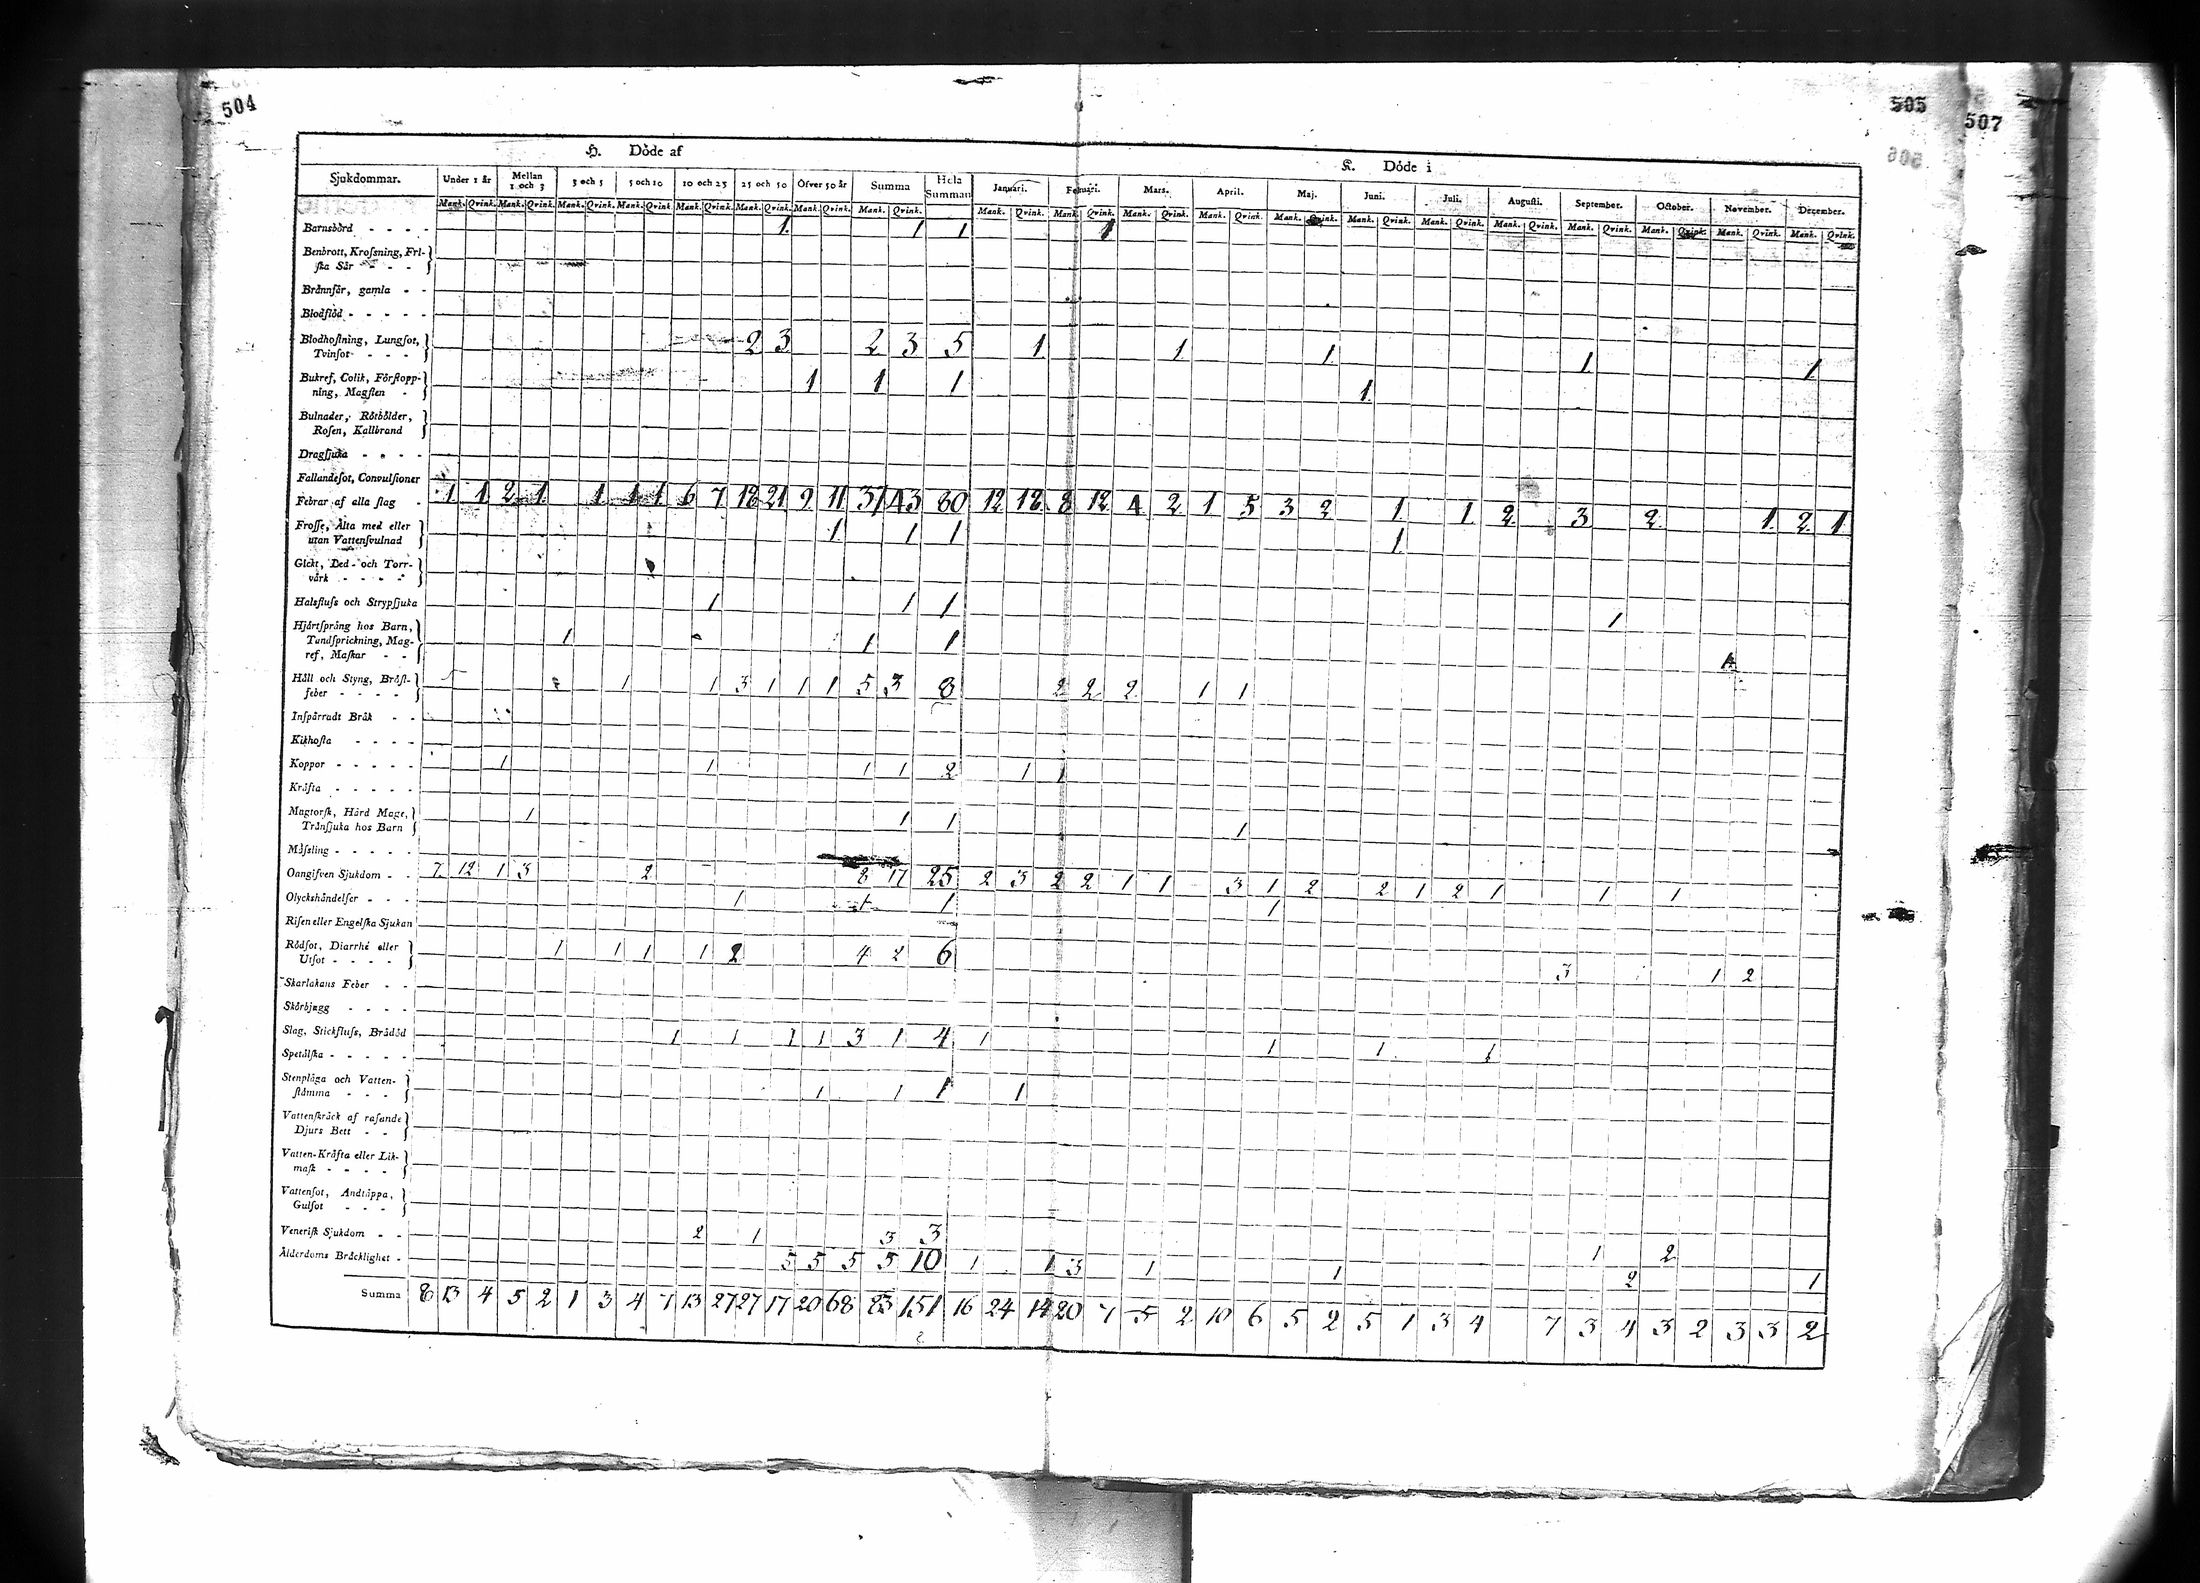 504
505
507
506
H. Döde af
K. Döde i
Sjukdommar. Under 1 år Mellan 1 och 3 3 och 5 5 och 10 10 och 25 25 och 50 Öfver 50 år Summa Hela Summan Januari. Februari. Mars. April. Maj. Juni. Juli. Augusti. September. October. November. December.
Mank. Qvink. Mank. Qvink. Mank. Qvink. Mank. Qvink. Mank. Qvink. Mank. Qvink. Mank. Qvink. Mank. Qvink. Mank. Qvink. Mank. Qvink. Mank. Qvink. Mank. Qvink. Mank. Qvink. Mank. Qvink. Mank. Qvink. Mank. Qvink. Mank. Qvink. Mank. Qvink. Mank. Qvink. Mank. Qvink.
Barnsbörd - - - - 1 1 1 1
Benbrott, Krosning, Fri-
ska Sår - - -
Brännsår, gamla - -
Blodflöd - - - - -
Blodhostning, Lungsot,
Tvinsot - - - 2 3 2 3 5 1 1 1 1 1
Bukref, Colik, Förstopp-
ning, Magsten - 1 1 1 1
Bulnader, Rötbölder,
Rosen, Kallbrand
Dragsjuka - - - -
Fallandesot, Convulsioner
Febrar af alla slag - 1 1 2 1 1 1 1 6 7 18 21 9 11 37 43 80 12 18 8 12 4 2 1 5 3 2 1 1 2 3 2 1 2 1
Frosse, Älta med eller
utan Vattensvulnad 1 1 1 1
Gickt, Led- och Torr-
värk - - - -
Halsfluss och Strypsjuka 1 1 1 1
Hjärtsprång hos Barn,
Tandsprickning, Mag-
ref, Maskar - - 1 1 1 1
Håll och Styng, Bröst-
feber - - - - 1 1 3 1 1 1 5 3 8 2 2 2 1 1
Inspärradt Bråk - -
Kikhosta - - - -
Koppor - - - - - 1 1 1 1 2 1 1
Kräfta - - - - -
Magtorsk, Hård Mage,
Trånsjuka hos Barn 1 1 1 1
Mässling - - - - -
Oangifven Sjukdom - - 7 12 1 3 2 8 17 25 2 3 2 2 1 1 3 1 2 2 1 2 1 1 1
Olyckshändelser - - - 1 1 1 1
Risen eller Engelska Sjukan
Rödsot, Diarrhé eller
Utsot - - - - 1 1 1 1 2 4 2 6 3 1 2
Skarlakans Feber - -
Skörbjugg - - - -
Slag, Stickfluss, Brådöd 1 1 1 1 3 1 4 1 1 1 1
Spetälska - - - - -
Stenplåga och Vatten-
stämma - - - 1 1 1 1
Vattenskräck af rasande
Djurs Bett - -
Vatten-Kräfta eller Lik-
mask - - - -
Vattensot, Andtäppa,
Gulsot - - -
Venerisk Sjukdom - - 2 1 3 3 1 2
Ålderdoms Bräcklighet - 5 5 5 5 10 1 1 3 1 1 2 1
Summa 8 13 4 5 2 1 3 4 7 13 27 27 17 20 68 83 151 16 24 14 20 7 5 2 10 6 5 2 5 1 3 4 7 3 4 3 2 3 3 2